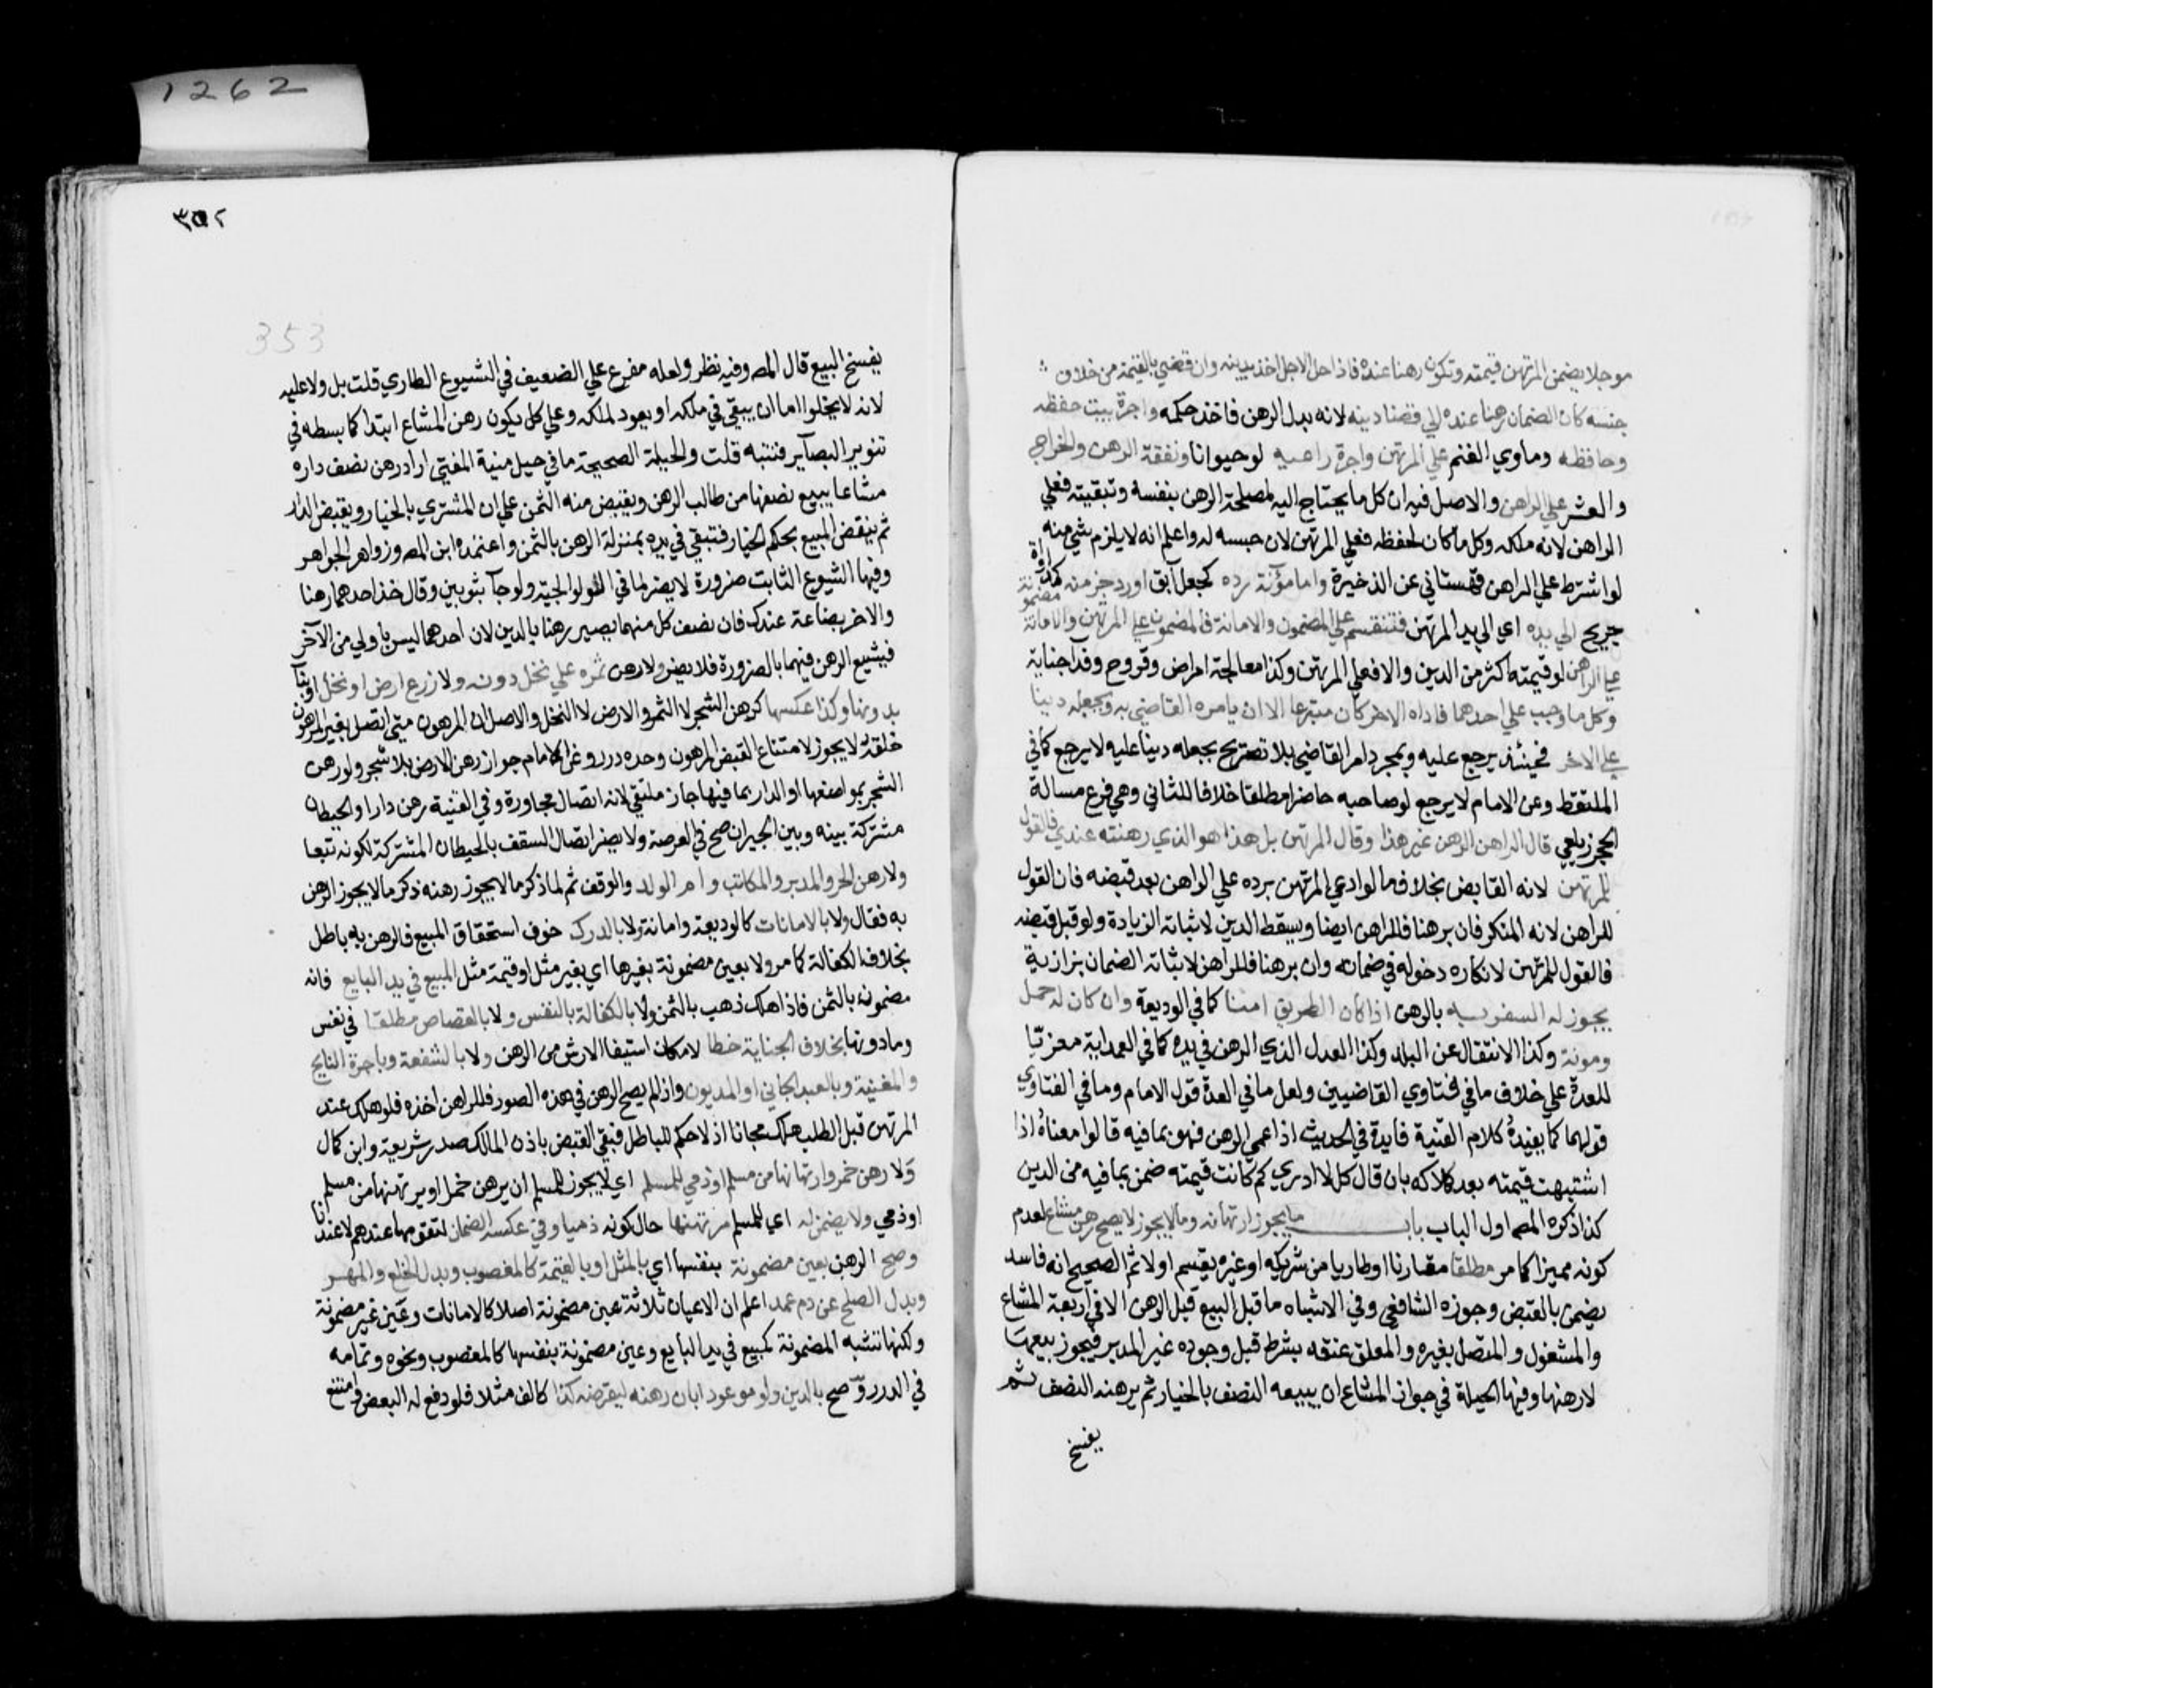 1262
موجلا يضمن المرتهن قيمته وتكون رهنا عنده فاذا حل الاجل اخذ بدينه وان قضي بالقيمة من خلاف
جنسه كان الضمان رهنا عنده الي قضا دينه لانه بدل الرهن فاخذ حكمه واجرة بيت حفظه
وحافظه وماوي الغنم علي المرتهن واجرة راعيه لو حيوانا ونفقة الرهن والخراج
والعشر علي الراهن والاصل فيه ان كل ما يحتاج اليه لمصلحة الرهن بنفسه وتبقيته فعلي
الراهن لانه ملكه وكل ما كان لحفظه فعلي المرتهن لان حبسه له واعلم انه لا يلزم شي منه
لو اشترط علي الراهن قهستاني عن الذخيرة واما مؤنة رده كجعل آبق او رد جز منه كمداواة
جريح الي يده اي الي يد المرتهن فتنقسم علي المضمون والامانة فالمضمون علي المرتهن والامانة مضمونة
علي الراهن لو قيمته اكثر من الدين والا فعلي المرتهن وكذا معالجة امراض وقروح وفدا جناية
وكل ما وجب علي احدهما فاداه الاخر كان متبرعا الا ان يامره القاضي به ويجعله دينا
علي الاخر فحينئذ يرجع عليه وبمجرد امر القاضي بلا تصريح بجعله دينا عليه لا يرجع كما في
الملتقط وعن الامام لا يرجع لو صاحبه حاضرا مطلقا خلافا للثاني وهي فرع مسالة
الحجر زيلعي قال الراهن الرهن غير هذا وقال المرتهن بل هذا هو الذي رهنته عندي فالقول
للمرتهن لانه القابض بخلاف ما لو ادعي المرتهن برده علي الراهن بعد قبضه فان القول
للراهن لانه المنكر فان برهنا فللراهن ايضا ويسقط الدين لاثباته الزيادة ولو قبل قبضه
فالقول للمرتهن لانكاره دخوله في ضمانه وان برهنا فللراهن لاثباته الضمان بزازية
يجوز له السفر به بالرهن اذا كان الطريق امنا كما في الوديعة وان كان له حمل
ومونة وكذا الانتقال عن البلد وكذا العدل الذي الرهن في يده كما في العمدابية معزيا
للعدة علي خلاف ما في فتاوي القاضيين ولعل ما في العدة قول الامام وما في الفتاوي
قولهما كما يفيده كلام القنية فايدة في الحديث اذا عمي الرهن فهو بما فيه قالوا معناه اذا
اشتبهت قيمته بعد هلاكه بان قال كل لا ادري كم كانت قيمته ضمن بما فيه من الدين
كذا ذكره المصـ اول الباب باب ما يجوز ارتهانه وما لا يجوز لا يصح رهن مشاع لعدم
كونه مميزا كما مر مطلقا مقارنا او طاريا من شريكه او غيره يقسم او لا ثم الصحيح انه فاسد
يضمن بالقبض وجوزه الشافعي وفي الاشباه ما قبل البيع قبل الرهن الا في اربعة المشاع
والمشغول والمتصل بغيره والمعلق عتقه بشرط قبل وجوده غير المدبر فيجوز بيعها
لا رهنها وفيها الحيلة في جواز المشاع ان يبيعه النصف بالخيار ثم يرهنه النصف ثم
يفسخ
٣٥٢
353
يفسخ البيع قال المصـ وفيه نظر ولعله مفرع علي الضعيف في الشيوع الطاري قلت بل ولا عليه
لانه لا يخلوا اما ان يبقي في ملكه او يعود لملكه وعلي كل يكون رهن المشاع ابتدا كما بسطه في
تنوير البصآير فتنبه قلت والحيلة الصحيحة ما في حيل منية المفتي اراد رهن نصف داره
مشاعا يبيع نصفها من طالب الرهن ويقبض منه الثمن علي ان المشتري بالخيار ويقبض الدار
ثم ينقض المبيع بحكم الخيار فتبقي في يده بمنزلة الرهن بالثمن واعتمده ابن المصـ وزواهر الجواهر
وفيها الشيوع الثابت ضرورة لا يضر لما في الولوالجية ولو جآ بثوبين وقال خذ احدهما رهنا
والاخر بضاعة عندك فان نصف كل منهما يصير رهنا بالدين لان احدهما ليس باولي من الآخر
فيشيع الرهن فيهما بالضرورة فلا يضر ولا رهن ثمره علي نخل دونه ولا زرع ارض او نخل او بنآ
بدونها وكذا عكسها كرهن الشجر لا الثمر والارض لا النخل والاصل ان المرهون متي اتصل بغير المرهون
خلقة لا يجوز لامتناع القبض المرهون وحده درر وعن الامام جواز رهن الارض بلا شجر ولو رهن
الشجر بمواضعها او الدار بما فيها جاز ملتقي لانه اتصال مجاورة وفي القنية رهن دارا والحيطان
مشتركة بينه وبين الجيران صح في العرصة ولا يضر اتصال السقف بالحيطان المشتركة لكونه تبعا
ولا رهن الحر والمدبر والمكاتب وام الولد والوقف ثم لما ذكر ما لا يجوز رهنه ذكر ما لا يجوز الرهن
به فقال ولا بالامانات كالوديعة وامانة ولا بالدرك خوف استحقاق المبيع فالرهن به باطل
بخلاف الكفالة كما مر ولا بعين مضمونة بغيرها اي بغير مثل او قيمة مثل المبيع في يد البايع فانه
مضمونه بالثمن فاذا هلك ذهب بالثمن ولا بالكفالة بالنفس ولا بالقصاص مطلقا في نفس
وما دونها بخلاف الجناية خطا لامكان استيفا الارش من الرهن ولا بالشفعة وباجرة النايح
والمغنية وبالعبد الجاني او المديون واذا لم يصح الرهن في هذه الصور فللراهن اخذه فلو هلك عند
المرتهن قبل الطلب هلك مجانا اذ لا حكم للباطل فبقي القبض باذن المالك صدر شريعة وابن كمال
ولا رهن خمر وارتهانها من مسلم او ذمي للمسلم اي لا يجوز للمسلم ان يرهن خمرا او يرتهنها من مسلم
او ذمي ولا يضمن له اي للمسلم مرتهنها حال كونه ذميا وفي عكسه الضمان لتقومها عندهم لا عندنا
وصح الرهن بعين مضمونة بنفسها اي بالمثل او بالقيمة كالمغصوب وبدل الخلع والمهر
وبدل الصلح عن دم عمد اعلم ان الاعيان ثلاثة عين مضمونة اصلا كالامانات وعين غير مضمونة
ولكنها تشبه المضمونة كمبيع في يد البايع وعين مضمونة بنفسها كالمغصوب ونحوه وتمامه
في الدرر وصح بالدين ولو موعودا بان رهنه ليقرضه كذا كالف مثلا فلو دفع له البعض وامتنع